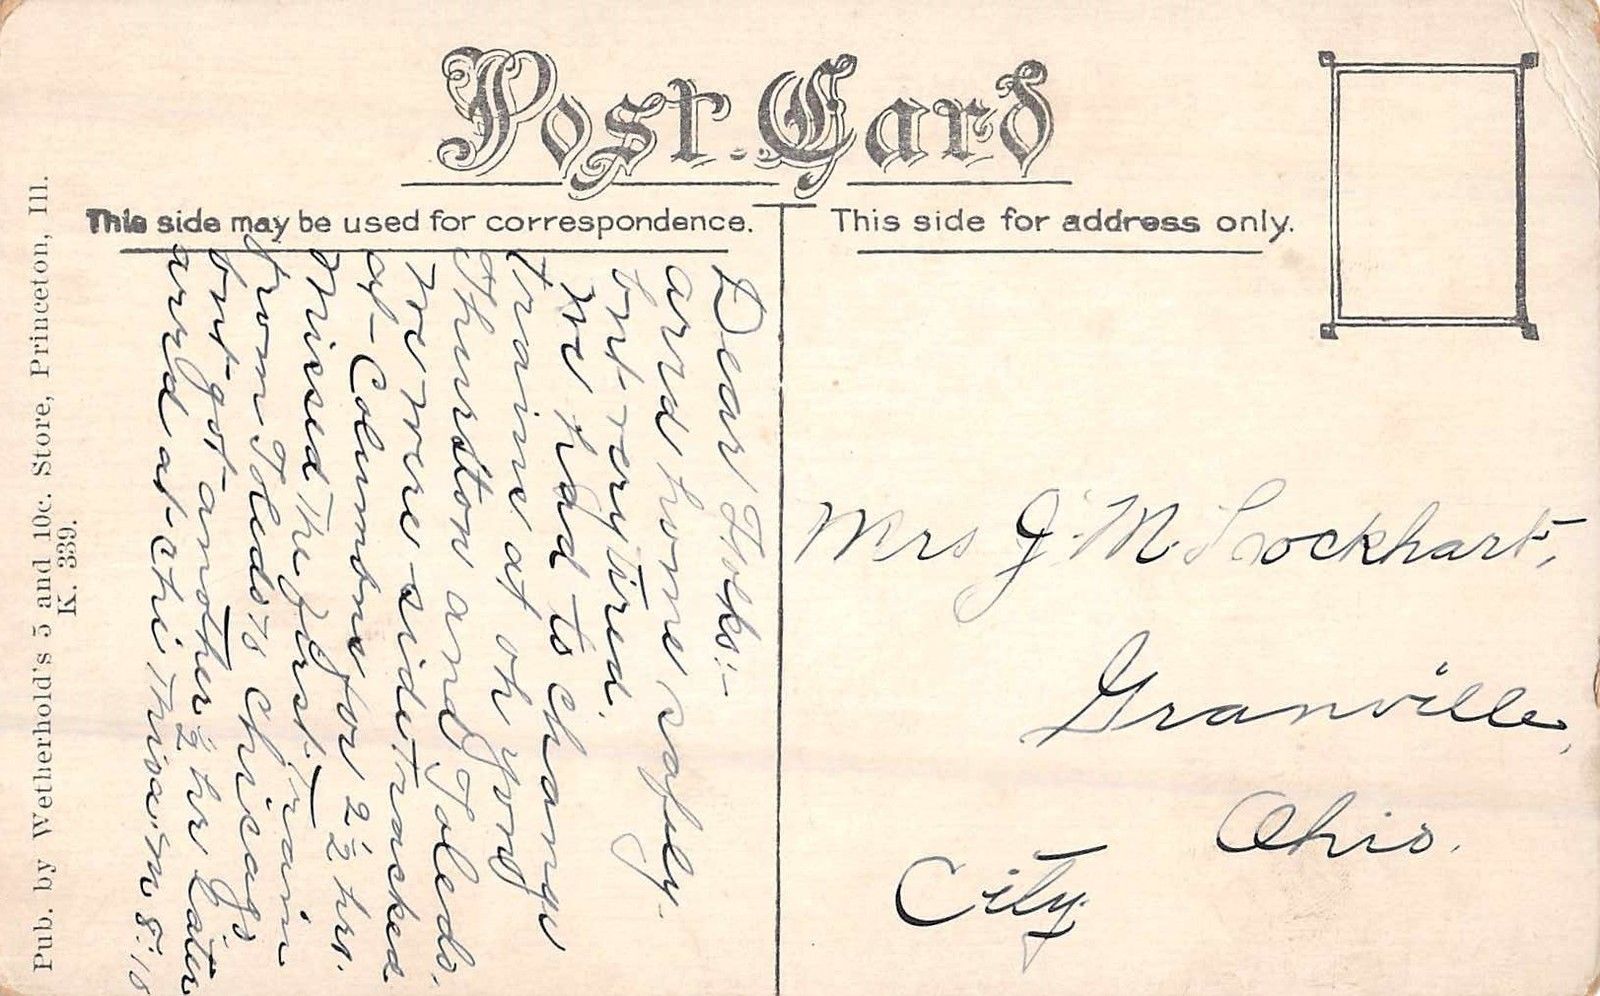 Post Card
This side may be used for correspondence.
This side for address only.
Pub. by Wetherhold's 5 and 10c. Store, Princeton, Ill.
K. 339.
Dear Folks:-
arrvd home safely
but very tired.
We had to change
trains at
Thurston and Toledo.
We were side tracked
at Columbus for 2½ hrs.
Missed the first train
from Toledo to Chicago
but got another ½ hr Later
arrvd at Chi this a.m 8:10
Mrs J. M. Lockhart,
Granville,
Ohio.
City